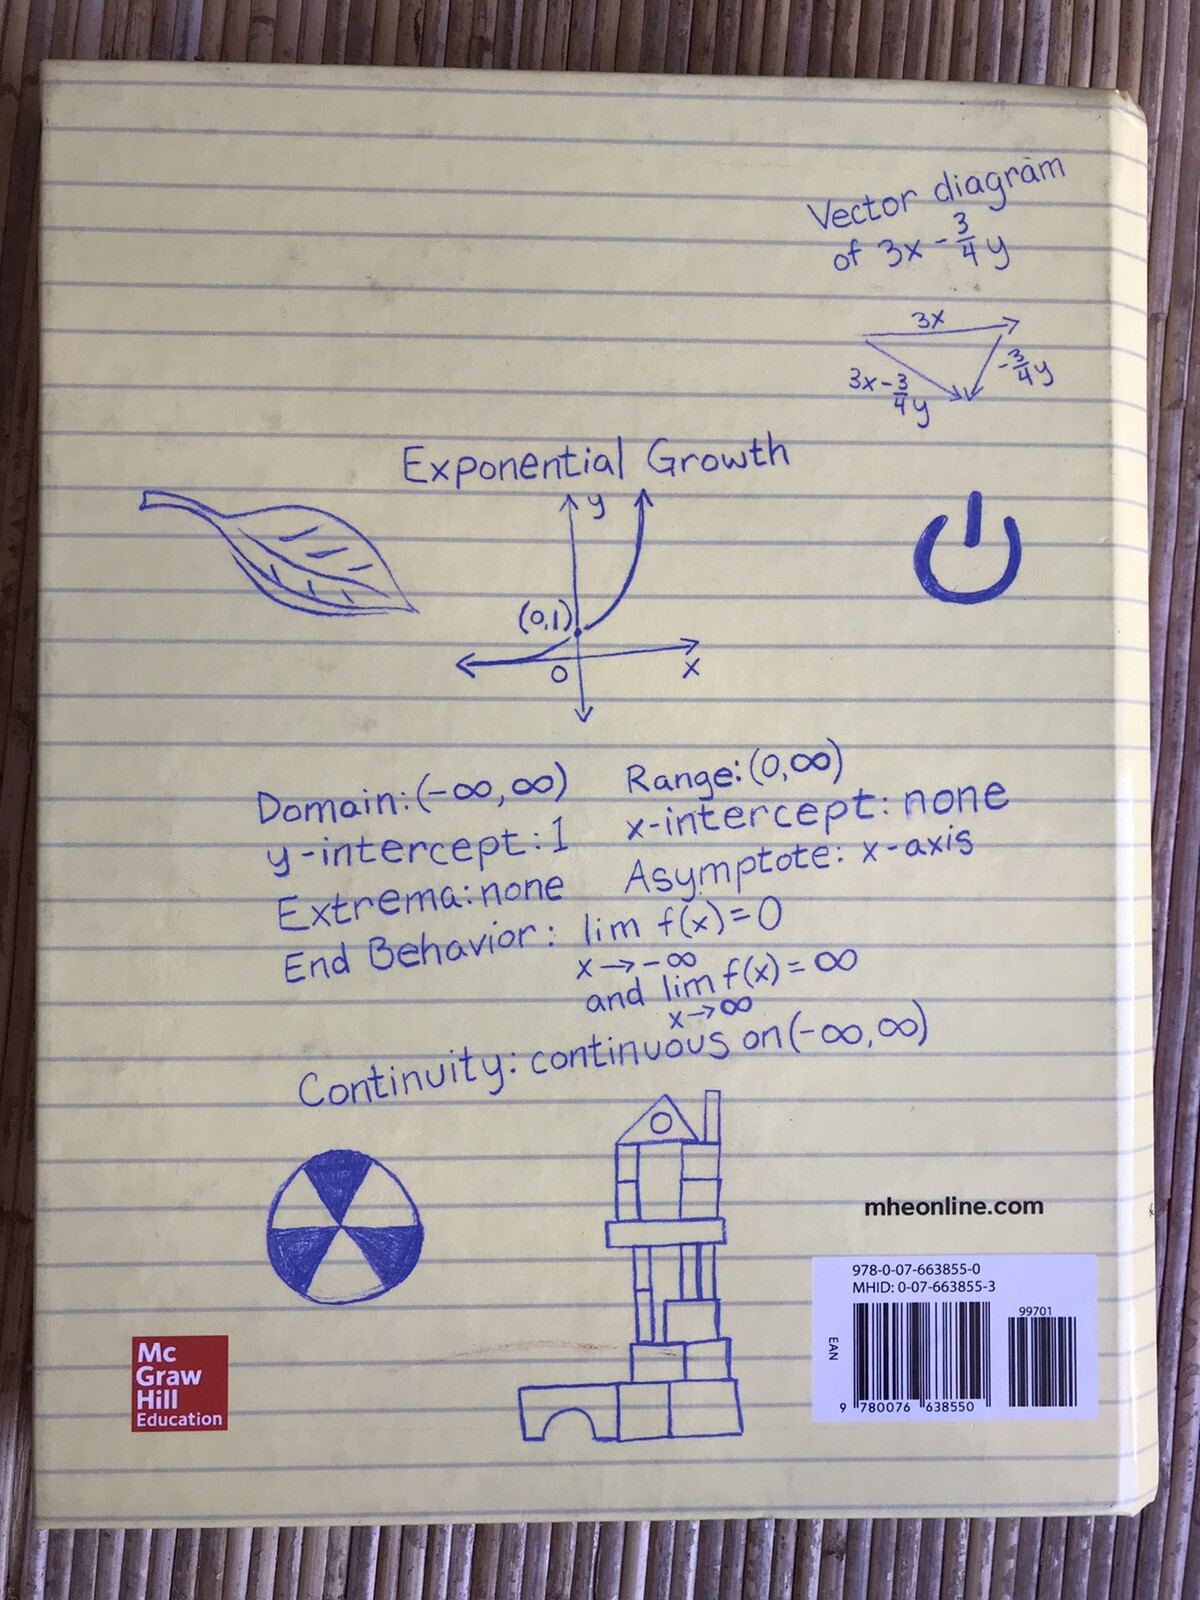 Vector diagram
of 3x - 3/4 y
3x
-3/4 y
3x - 3/4 y
Exponential Growth
y
(0,1)
0
x
Domain: (-∞, ∞) Range: (0, ∞)
y-intercept: 1 x-intercept: none
Extrema: none Asymptote: x-axis
End Behavior: lim f(x) = 0
x → -∞
and lim f(x) = ∞
x → ∞
Continuity: continuous on (-∞, ∞)
mheonline.com
978-0-07-663855-0
MHID: 0-07-663855-3
99701
EAN
9 780076 638550
Mc
Graw
Hill
Education